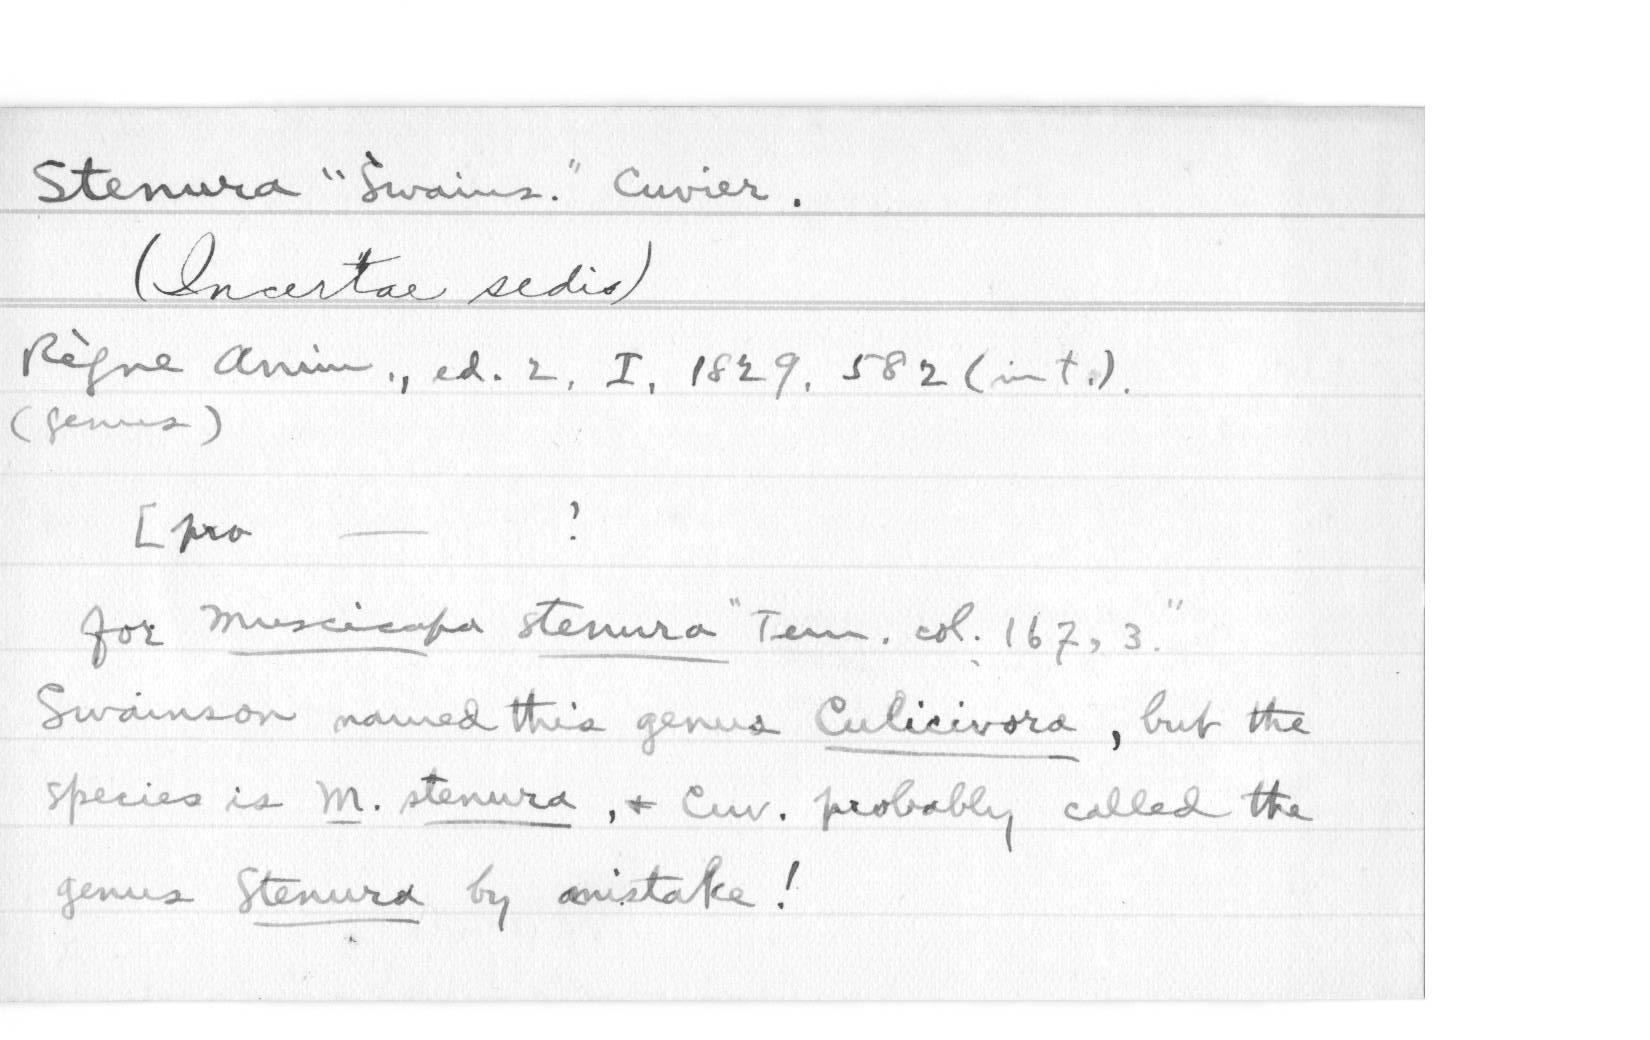 Stenura "Swains." Cuvier.
(Incertae sedis)
Règne Anim., ed. 2, I, 1829, 582 (int.).
(genus)
[pro — ?
for Muscicapa stenura "Tem. col. 167, 3."
Swainson named this genus Culicivora, but the
species is M. stenura, & Cuv. probably called the
genus Stenura by mistake!